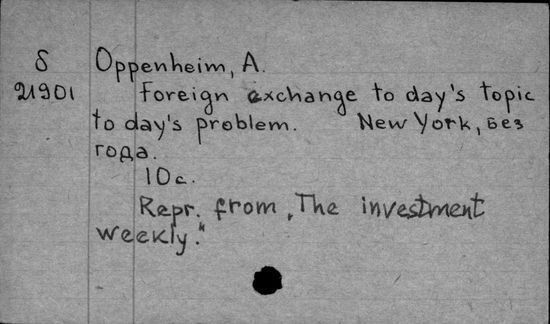 δ Oppenheim, A.
21901 Foreign exchange to day's topic
to day's problem. New York, без
года.
10 с.
Repr. from „The investment
weekly.“